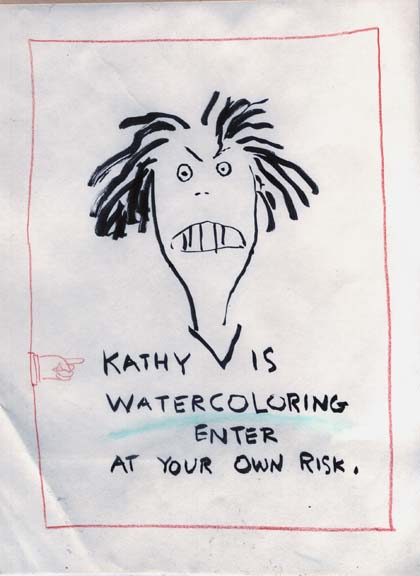 KATHY IS
WATERCOLORING
ENTER
AT YOUR OWN RISK.